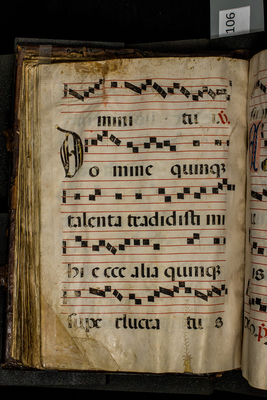 106
mini tu i.
Domine quinq3
talenta tradidisti mi
hi e ccc alia quinq3
supe rlucra tu s